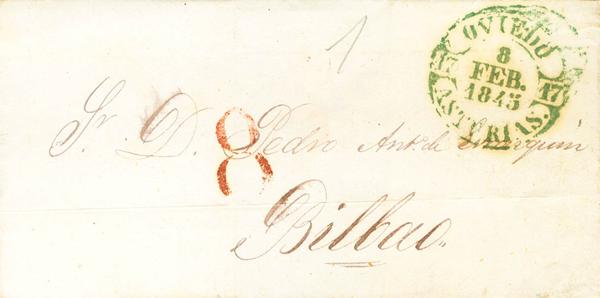 1
OVIEDO
8
FEB.
1845
17 17
ASTURIAS.
8
Sr. D. Pedro Ant. de
Bilbao.